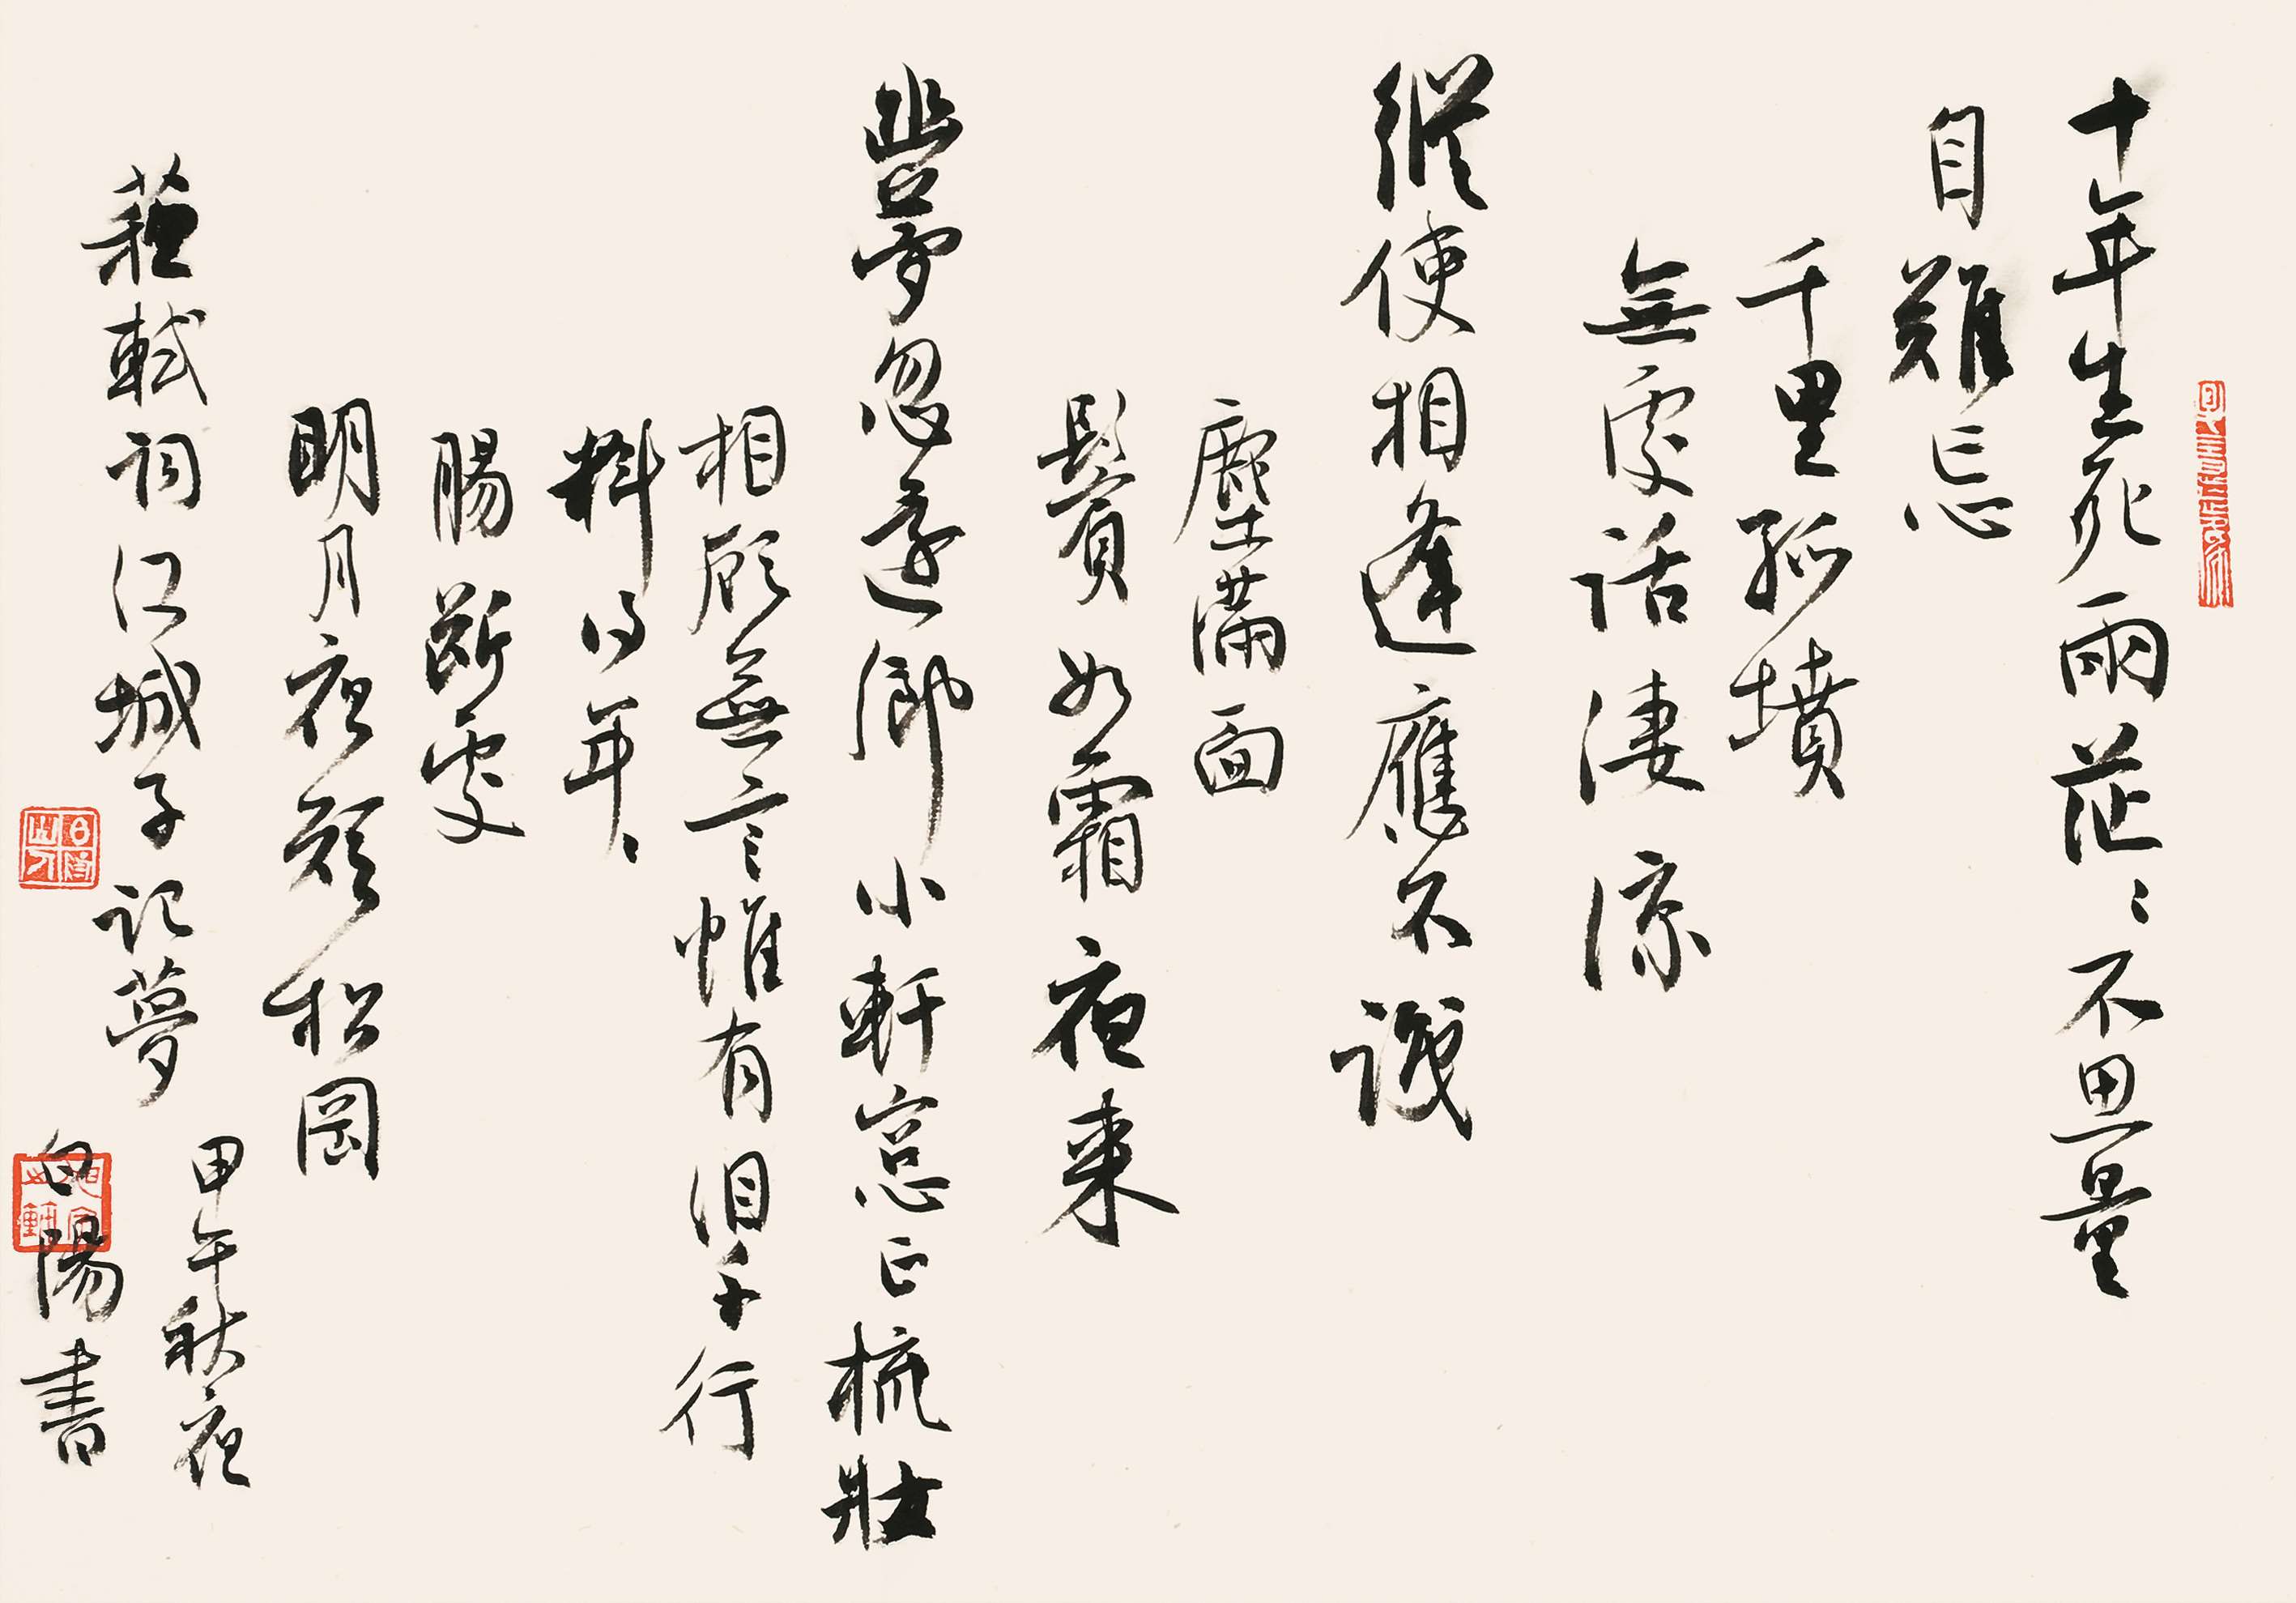 十年生死兩茫〻不思量
自難忘
千里孤墳
無處話淒涼
縱使相逢應不識
塵滿面
鬢如霜夜来
幽夢忽還鄉小軒窓正梳妝
相顧無言惟有泪千行
料得年〻
腸斷處
明月夜短松岡
蘇軾詞江城子記夢
甲午秋夜
白陽書
白陽山人